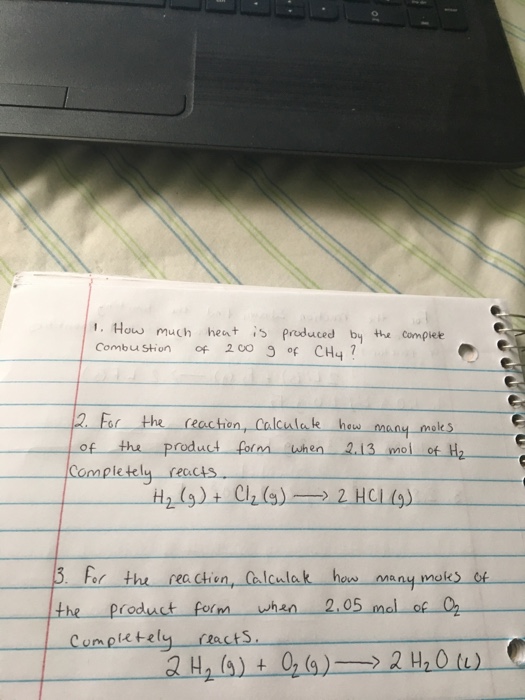 1. How much heat is produced by the complete
combustion of 200 g of CH4?
2. For the reaction, Calculate how many moles
of the product form when 2.13 mol of H2
completely reacts.
H2(g) + Cl2(g) → 2 HCl (g)
3. For the reaction, Calculate how many moles of
the product form when 2.05 mol of O2
completely reacts.
2 H2 (g) + O2 (g) → 2 H2O (l)